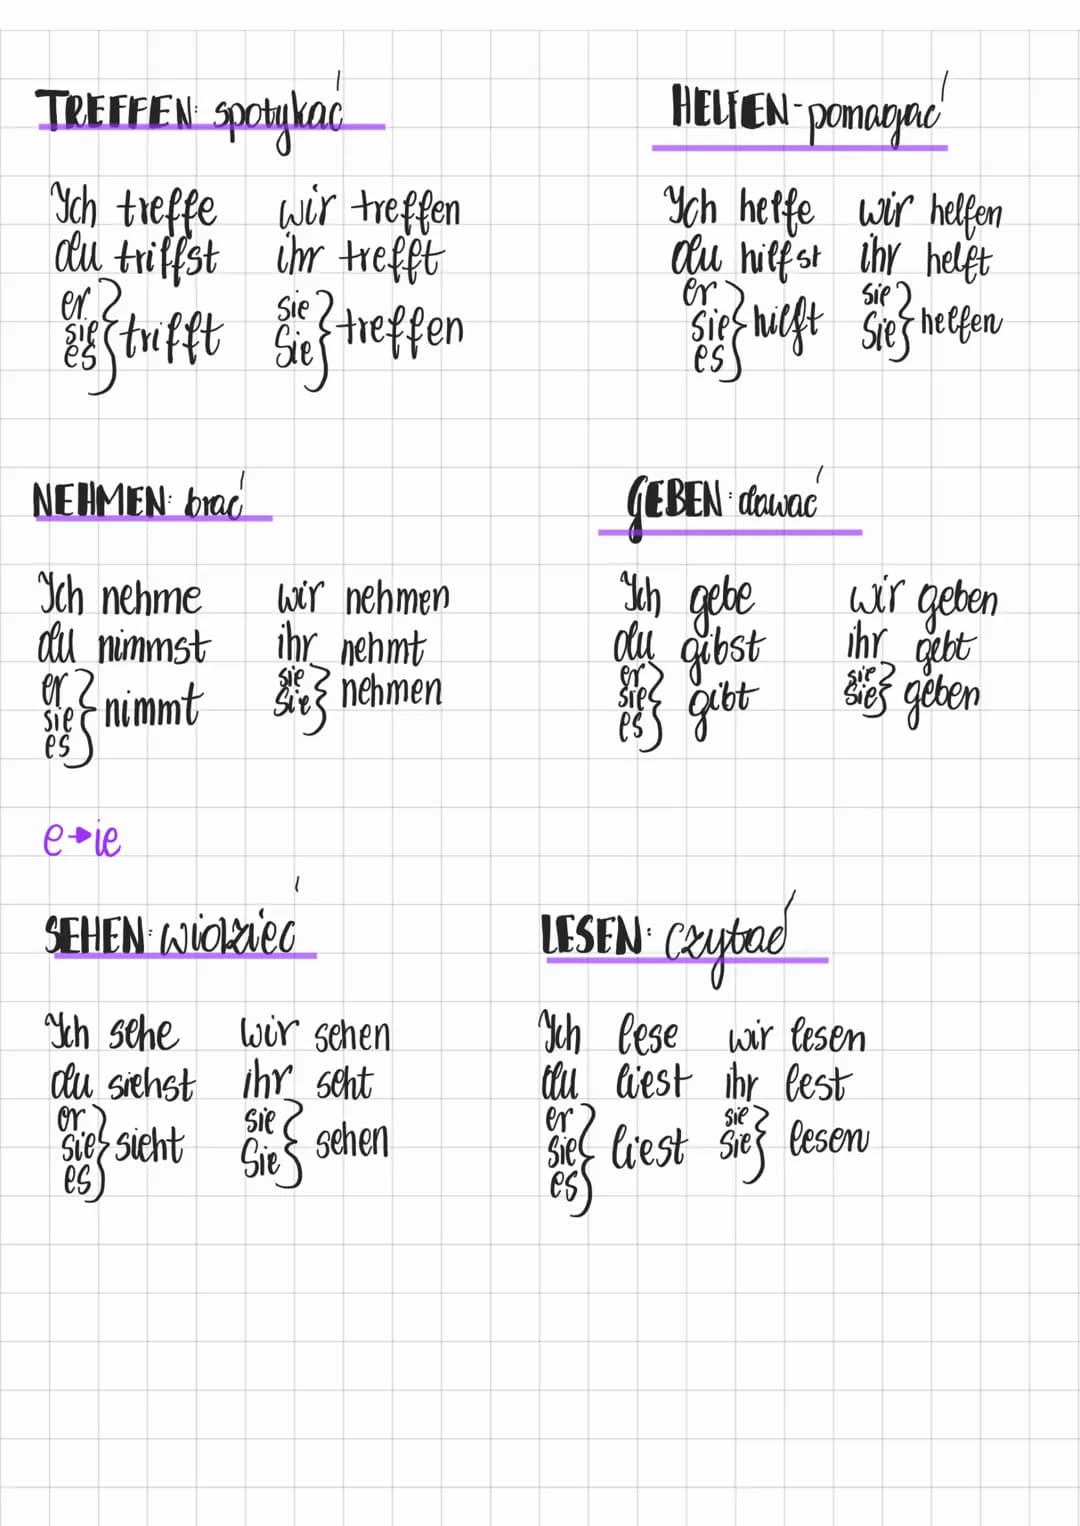 TREFFEN: spotykać
Ich treffe wir treffen
du triffst ihr trefft
er
sie trifft
es
sie
Sie treffen
HELFEN - pomagać
Ich helfe wir helfen
du hilfst ihr helft
er
sie hilft
es
sie
Sie helfen
NEHMEN: brać
Ich nehme wir nehmen
du nimmst ihr nehmt
er
sie nimmt
es
sie
Sie nehmen
GEBEN: dawać
Ich gebe wir geben
du gibst ihr gebt
er
sie gibt
es
sie
Sie geben
e→ie
SEHEN: widzieć
Ich sehe wir sehen
du siehst ihr seht
er
sie sieht
es
sie
Sie sehen
LESEN: czytać
Ich lese wir lesen
du liest ihr lest
er
sie liest
es
sie
Sie lesen